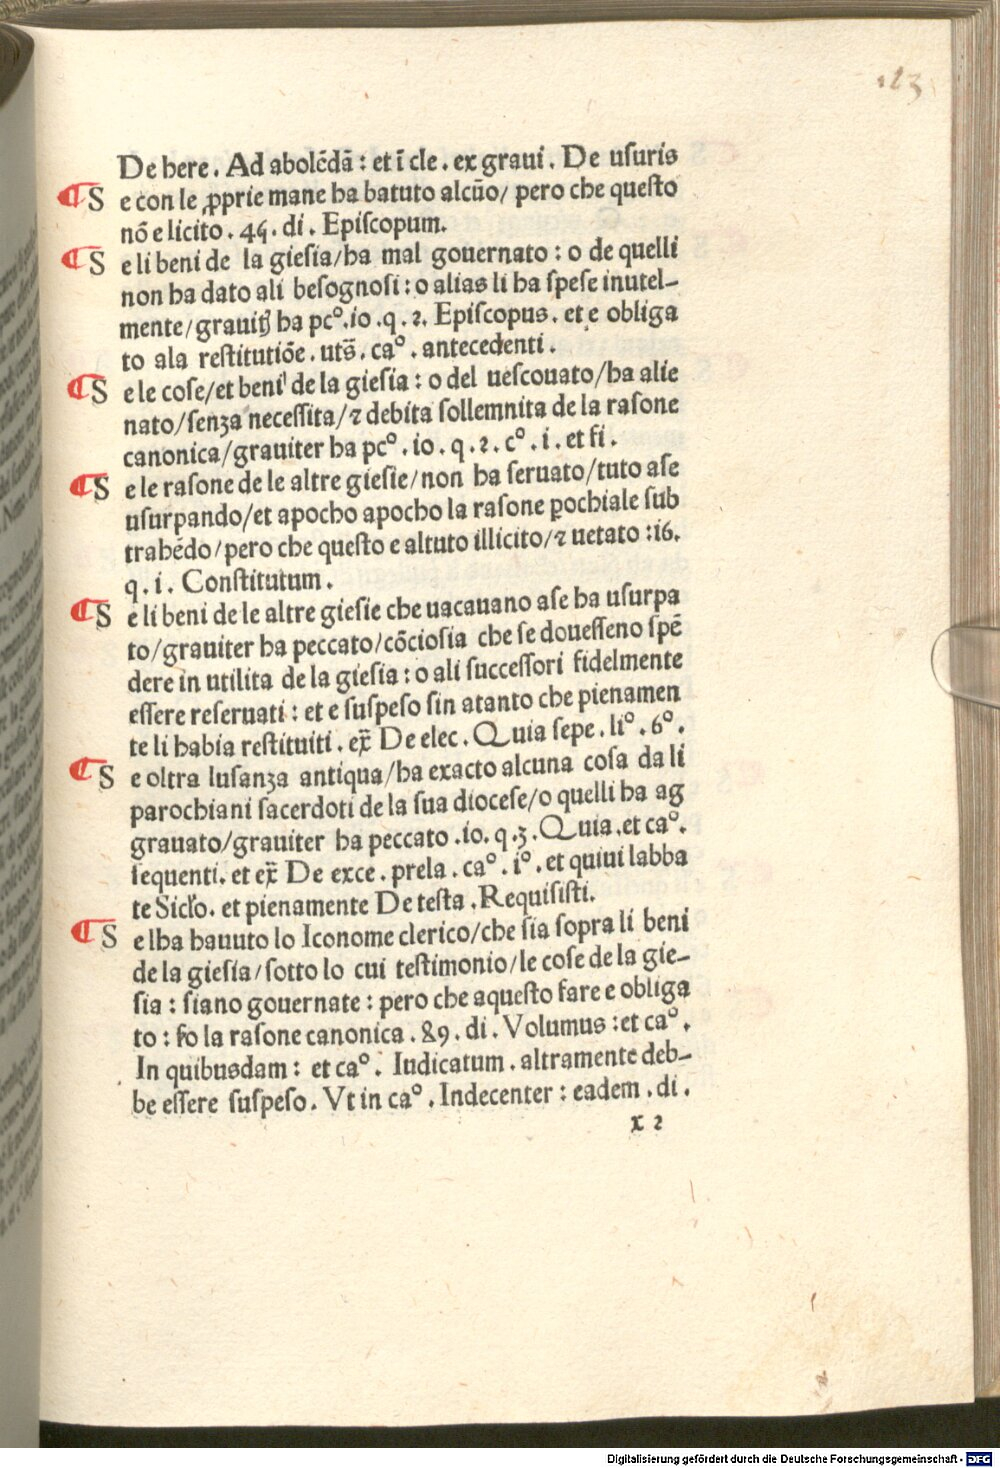 123
De here. Ad abolēdā: et ī cle. ex graui. De uſuris
¶ S e con le ꝓprie mane ha batuto alcūo/ pero che queſto
nō e licito. 46. di. Epiſcopum.
¶ S e li beni de la gieſia/ha mal gouernato: o de quelli
non ha dato ali beſognoſi: o alias li ha ſpeſe inutel-
mente/grauiť ha pcº. io. q. 2. Epiſcopus. et e obliga
to ala reſtitutiōe. utš. caº. antecedenti.
¶ S e le coſe/et beni de la gieſia: o del ueſcouato/ha alie
nato/ſenza neceſſita/⁊ debita ſollemnita de la raſone
canonica/grauiter ha pcº. io. q. 2. cº. i. et fi.
¶ S e le raſone de le altre gieſie/non ha ſeruato/tuto aſe
uſurpando/et apocho apocho la raſone ꝑochiale ſub
trahēdo/pero che queſto e altuto illicito/⁊ uetato: 16.
q. i. Conſtitutum.
¶ S e li beni de le altre gieſie che uacauano aſe ha uſurpa
to/grauiter ha peccato/cōcioſia che ſe doueſſeno ſpē
dere in utilita de la gieſia: o ali ſucceſſori fidelmente
eſſere reſeruati: et e ſuſpeſo ſin atanto che pienamen
te li habia reſtituiti. ex̄ De elec. Quia ſepe. liº. 6º.
¶ S e oltra luſanza antiqua/ha exacto alcuna coſa da li
parochiani ſacerdoti de la ſua dioceſe/o quelli ha ag
grauato/grauiter ha peccato. io. q. 3. Quia. et caº.
ſequenti. et ex̄ De exce. prela. caº. iº. et quiui labba
te Siclo. et pienamente De teſta. Requiſiſti.
¶ S e lha hauuto lo Iconome clerico/che ſia ſopra li beni
de la gieſia/ſotto lo cui teſtimonio/le coſe de la gie-
ſia: ſiano gouernate: pero che aqueſto fare e obliga
to: ſo la raſone canonica. 89. di. Volumus: et caº.
In quibusdam: et caº. Iudicatum. altramente deb-
be eſſere ſuſpeſo. Vt in caº. Indecenter: eadem. di.
x 2
Digitalisierung gefördert durch die Deutsche Forschungsgemeinschaft - DFG